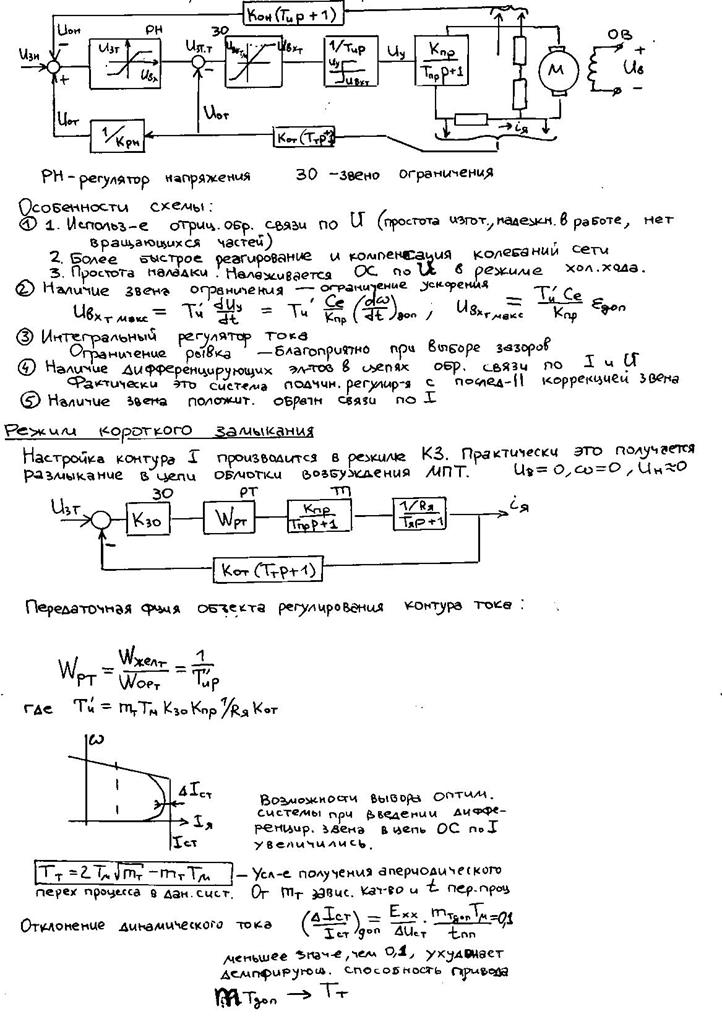 Kон(Tиp+1)
Uон
РН
ЗО
1/Tиp
ОВ
Uзн
Uзт
Uвх
Uзт.т
Uвхт
Uу
Uвхт
Uу
Kпр
Tпрp+1
М
Uв
Uот
1/Kрн
Uот
Kот(Tтp+1)
iя
РН-регулятор напряжения ЗО -звено ограничения
Особенности схемы:
① 1. Использ-е отриц. обр. связи по U (простота изгот., надежн. в работе, нет
вращающихся частей)
2. Более быстрое реагирование и компенсация колебаний сети
3. Простота наладки. Налаживается ОС по U в режиме хол.хода.
② Наличие звена ограничения — ограничение ускорения
Uвхт макс = Tи' dUу/dt = Tи' Ce/Kпр (dω/dt)доп ; Uвхт макс = Tи' Ce/Kпр εдоп
③ Интегральный регулятор тока
Ограничение рывка — благоприятно при выборе зазоров
④ Наличие дифференцирующих эл-тов в цепях обр. связи по I и U
Фактически это система подчин. регулир-я с послед-II коррекцией звена
⑤ Наличие звена положит. обратн связи по I
Режим короткого замыкания
Настройка контура I производится в режиме КЗ. Практически это получается
размыкание в цепи обмотки возбуждения МПТ. Uв=0, ω=0, Uн≈0
ЗО РТ ТП
Uзт
Kзо
Wрт
Kпр/Tпрp+1
1/Rя/Tяp+1
iя
Kот(Tтp+1)
Передаточная ф-ция объекта регулирования контура тока:
Wрт = Wжелт/Wорт = 1/Tи'p
где Tи' = mтTм Kзо Kпр 1/Rя Kот
ω
ΔIст
Iя
Iст
Возможности выбора оптим.
системы при введении диффе-
ренцир. звена в цепь ОС по I
увеличились.
Tт = 2Tм√mт - mтTм — Усл-е получения апериодического
перех процесса в дан. сист. От mт завис. кач-во и t пер.проц
Отклонение динамического тока (ΔIст/Iст)доп = Eхх/ΔUст · mтдопTм/tпп = 0,1
меньшее знач-е, чем 0,1, ухудшает
демпфирующ. способность привода
mтдоп → Tт